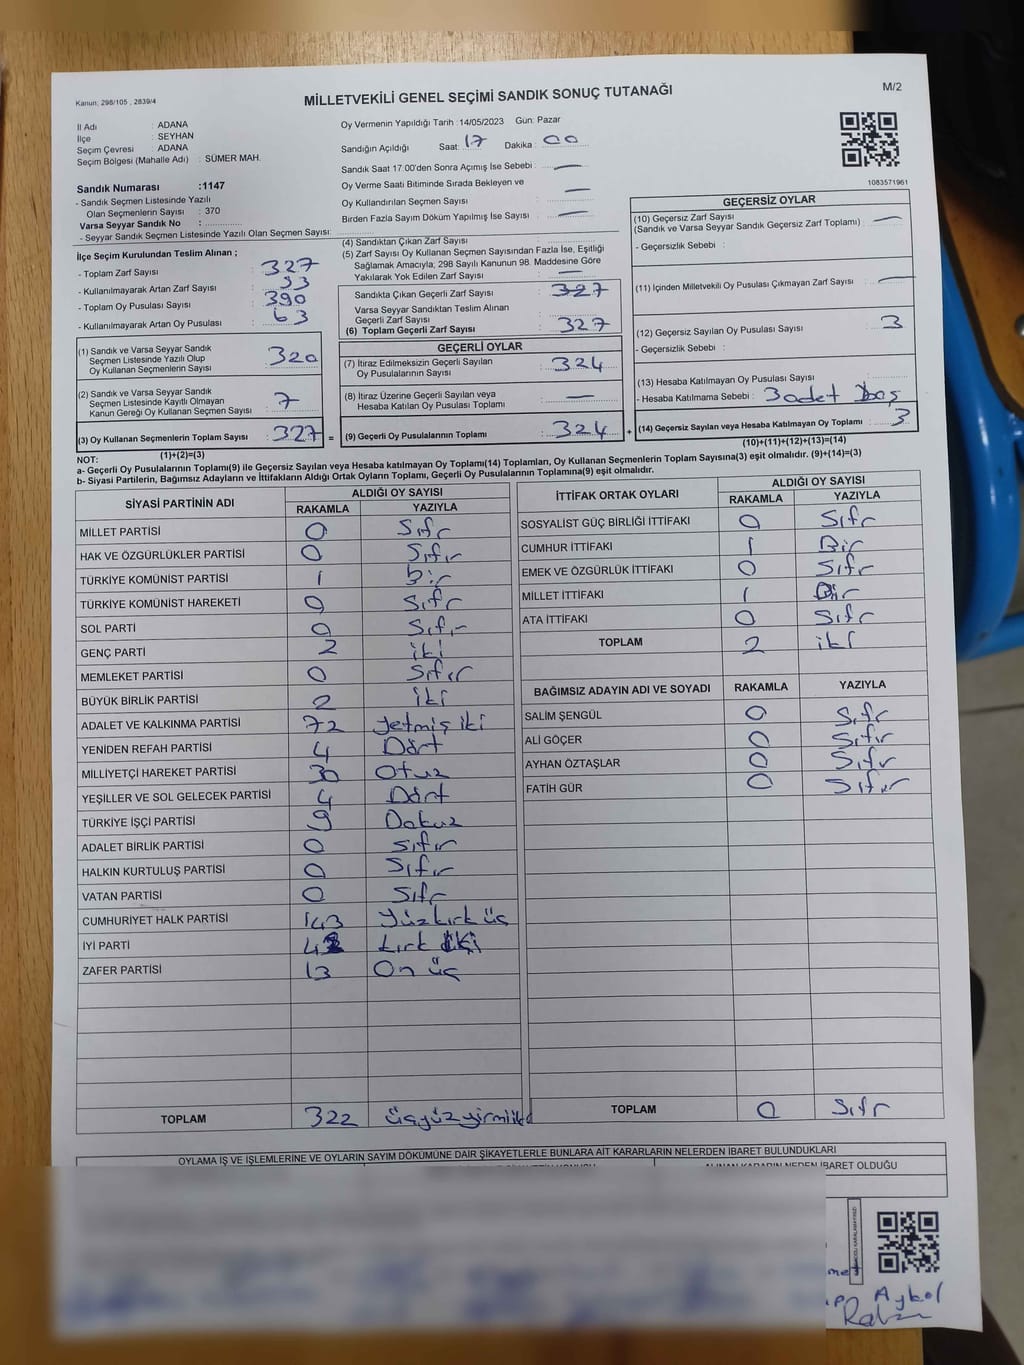 Kanun; 298/105 , 2839/4
MİLLETVEKİLİ GENEL SEÇİMİ SANDIK SONUÇ TUTANAĞI
M/2
İl Adı : ADANA
İlçe : SEYHAN
Seçim Çevresi : ADANA
Seçim Bölgesi (Mahalle Adı) : SÜMER MAH.
Sandık Numarası :1147
- Sandık Seçmen Listesinde Yazılı
Olan Seçmenlerin Sayısı : 370
Varsa Seyyar Sandık No :
- Seyyar Sandık Seçmen Listesinde Yazılı Olan Seçmen Sayısı:
Oy Vermenin Yapıldığı Tarih :14/05/2023 Gün: Pazar
Sandığın Açıldığı Saat: 17 Dakika : 00
Sandık Saat 17:00'den Sonra Açımış İse Sebebi : —
Oy Verme Saati Bitiminde Sırada Bekleyen ve
Oy Kullandırılan Seçmen Sayısı : —
Birden Fazla Sayım Döküm Yapılmış İse Sayısı : —
1083571961
İlçe Seçim Kurulundan Teslim Alınan ;
- Toplam Zarf Sayısı : 327
- Kullanılmayarak Artan Zarf Sayısı : 33
- Toplam Oy Pusulası Sayısı : 390
- Kullanılmayarak Artan Oy Pusulası : 63
(1) Sandık ve Varsa Seyyar Sandık
Seçmen Listesinde Yazılı Olup
Oy Kullanan Seçmenlerin Sayısı : 320
(2) Sandık ve Varsa Seyyar Sandık
Seçmen Listesinde Kayıtlı Olmayan
Kanun Gereği Oy Kullanan Seçmen Sayısı : 7
(3) Oy Kullanan Seçmenlerin Toplam Sayısı : 327 =
(1)+(2)=(3)
(4) Sandıktan Çıkan Zarf Sayısı :
(5) Zarf Sayısı Oy Kullanan Seçmen Sayısından Fazla İse, Eşitliği
Sağlamak Amacıyla; 298 Sayılı Kanunun 98. Maddesine Göre
Yakılarak Yok Edilen Zarf Sayısı : —
Sandıkta Çıkan Geçerli Zarf Sayısı : 327
Varsa Seyyar Sandıktan Teslim Alınan
Geçerli Zarf Sayısı :
(6) Toplam Geçerli Zarf Sayısı : 327
GEÇERLİ OYLAR
(7) İtiraz Edilmeksizin Geçerli Sayılan
Oy Pusulalarının Sayısı : 324
(8) İtiraz Üzerine Geçerli Sayılan veya
Hesaba Katılan Oy Pusulası Toplamı : —
(9) Geçerli Oy Pusulalarının Toplamı : 324 +
GEÇERSİZ OYLAR
(10) Geçersiz Zarf Sayısı :
(Sandık ve Varsa Seyyar Sandık Geçersiz Zarf Toplamı) —
- Geçersizlik Sebebi :
(11) İçinden Milletvekili Oy Pusulası Çıkmayan Zarf Sayısı : —
(12) Geçersiz Sayılan Oy Pusulası Sayısı : 3
- Geçersizlik Sebebi :
(13) Hesaba Katılmayan Oy Pusulası Sayısı :
- Hesaba Katılmama Sebebi : 3 adet Boş
(14) Geçersiz Sayılan veya Hesaba Katılmayan Oy Toplamı : 3
(10)+(11)+(12)+(13)=(14)
NOT:
a- Geçerli Oy Pusulalarının Toplamı(9) ile Geçersiz Sayılan veya Hesaba katılmayan Oy Toplamı(14) Toplamları, Oy Kullanan Seçmenlerin Toplam Sayısına(3) eşit olmalıdır. (9)+(14)=(3)
b- Siyasi Partilerin, Bağımsız Adayların ve İttifakların Aldığı Ortak Oyların Toplamı, Geçerli Oy Pusulalarının Toplamına(9) eşit olmalıdır.
SİYASİ PARTİNİN ADI ALDIĞI OY SAYISI
RAKAMLA YAZIYLA
MİLLET PARTİSİ 0 Sıfır
HAK VE ÖZGÜRLÜKLER PARTİSİ 0 Sıfır
TÜRKİYE KOMÜNİST PARTİSİ 1 bir
TÜRKİYE KOMÜNİST HAREKETİ 0 Sıfır
SOL PARTİ 0 Sıfır
GENÇ PARTİ 2 iki
MEMLEKET PARTİSİ 0 Sıfır
BÜYÜK BİRLİK PARTİSİ 2 İki
ADALET VE KALKINMA PARTİSİ 72 Yetmiş iki
YENİDEN REFAH PARTİSİ 4 Dört
MİLLİYETÇİ HAREKET PARTİSİ 30 Otuz
YEŞİLLER VE SOL GELECEK PARTİSİ 4 Dört
TÜRKİYE İŞÇİ PARTİSİ 9 Dokuz
ADALET BİRLİK PARTİSİ 0 sıfır
HALKIN KURTULUŞ PARTİSİ 0 Sıfır
VATAN PARTİSİ 0 Sıfır
CUMHURİYET HALK PARTİSİ 143 Yüzkırk üç
İYİ PARTİ 42 kırk iki
ZAFER PARTİSİ 13 On üç
TOPLAM 322 üçyüzyirmiiki
İTTİFAK ORTAK OYLARI ALDIĞI OY SAYISI
RAKAMLA YAZIYLA
SOSYALİST GÜÇ BİRLİĞİ İTTİFAKI 0 Sıfır
CUMHUR İTTİFAKI 1 Bir
EMEK VE ÖZGÜRLÜK İTTİFAKI 0 Sıfır
MİLLET İTTİFAKI 1 Bir
ATA İTTİFAKI 0 Sıfır
TOPLAM 2 iki
BAĞIMSIZ ADAYIN ADI VE SOYADI RAKAMLA YAZIYLA
SALİM ŞENGÜL 0 Sıfır
ALİ GÖÇER 0 Sıfır
AYHAN ÖZTAŞLAR 0 Sıfır
FATİH GÜR 0 Sıfır
TOPLAM 0 Sıfır
OYLAMA İŞ VE İŞLEMLERİNE VE OYLARIN SAYIM DÖKÜMÜNE DAİR ŞİKAYETLERLE BUNLARA AİT KARARLARIN NELERDEN İBARET BULUNDUKLARI
ALINAN KARARIN NEDEN İBARET OLDUĞU
Aykol